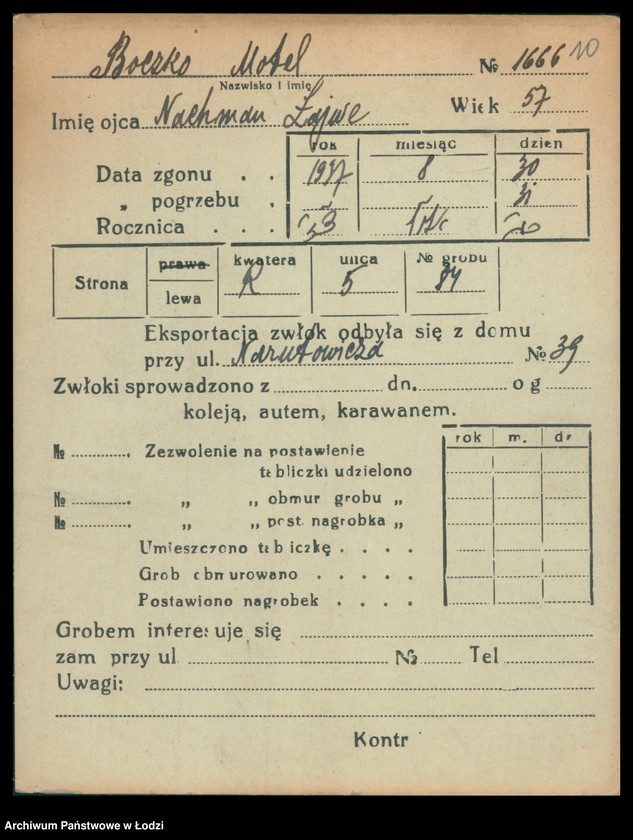 Boczko Motel № 1666 10
Nazwisko i imię
Imię ojca Nachman Łajwe Wiek 57
rok miesiąc dzień
Data zgonu . . 1937 8 30
„ pogrzebu . 31
Rocznica . . .
Strona prawa kwatera ulica № grobu
lewa R 5 84
Eksportacja zwłok odbyła się z domu
przy ul. Narutowicza № 39
Zwłoki sprowadzono z dn. o g
koleją, autem, karawanem.
rok m. dz
№ Zezwolenie na postawienie
tabliczki udzielono
№ „ „ obmur grobu „
№ „ „ post. nagrobka „
Umieszczono tabliczkę . . . .
Grob obmurowano . . . .
Postawiono nagrobek . . . .
Grobem interesuje się
zam przy ul № Tel
Uwagi:
Kontr
Archiwum Państwowe w Łodzi